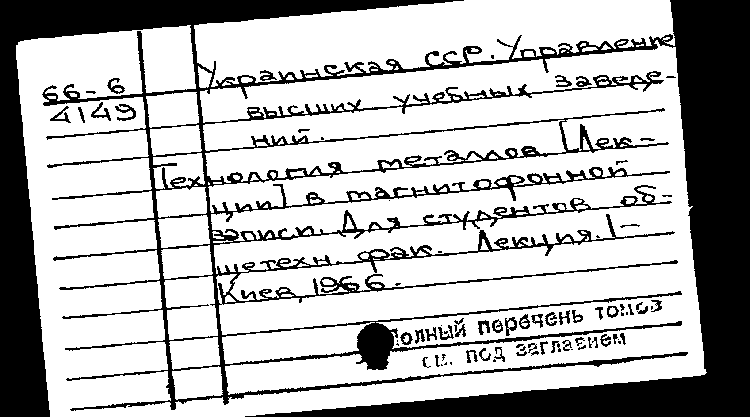 66-6
4149
Украинская ССР. Управление
высших учебных заведе-
ний.
Технология металлов. [Лек-
ции] в магнитофонной
записи. Для студентов об-
щетехн. фак. Лекция. 1-
Киев, 1966.
Полный перечень томов
см. под заглавием